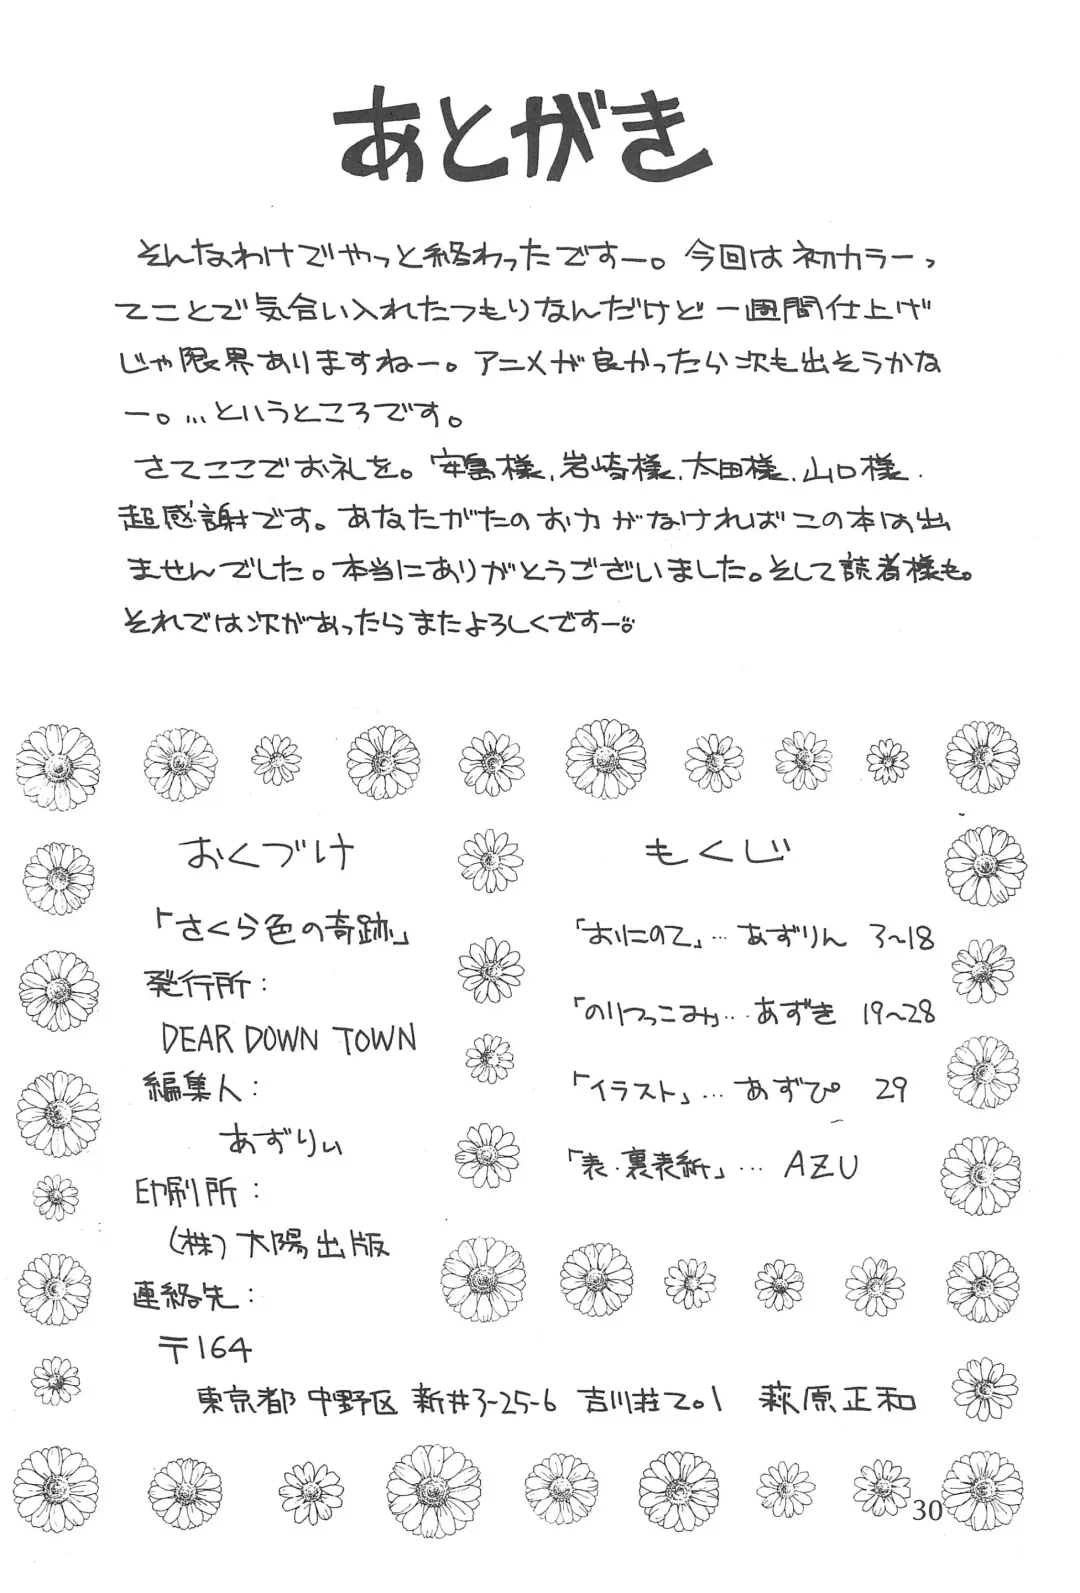 あとがき
そんなわけでやっと終わったですー。今回は初カラーっ
てことで気合い入れたつもりなんだけど一週間仕上げ
じゃ限界ありますねー。アニメが良かったら次も出そうかな
ー。…というところです。
さてここでお礼を。安島様、岩崎様、太田様、山口様、
超感謝です。あなたがたのお力がなければこの本は出
ませんでした。本当にありがとうございました。そして読者様も。
それでは次があったらまたよろしくですー。
おくづけ
「さくら色の奇跡」
発行所:
DEAR DOWN TOWN
編集人:
あずりぃ
印刷所:
(株)太陽出版
連絡先:
〒164
東京都 中野区 新井3-25-6 吉川荘201 萩原正和
もくじ
「おにのて」…あずりん 3~18
「のりつっこみ」…あずき 19~28
「イラスト」…あずぴ 29
「表・裏表紙」… AZU
30